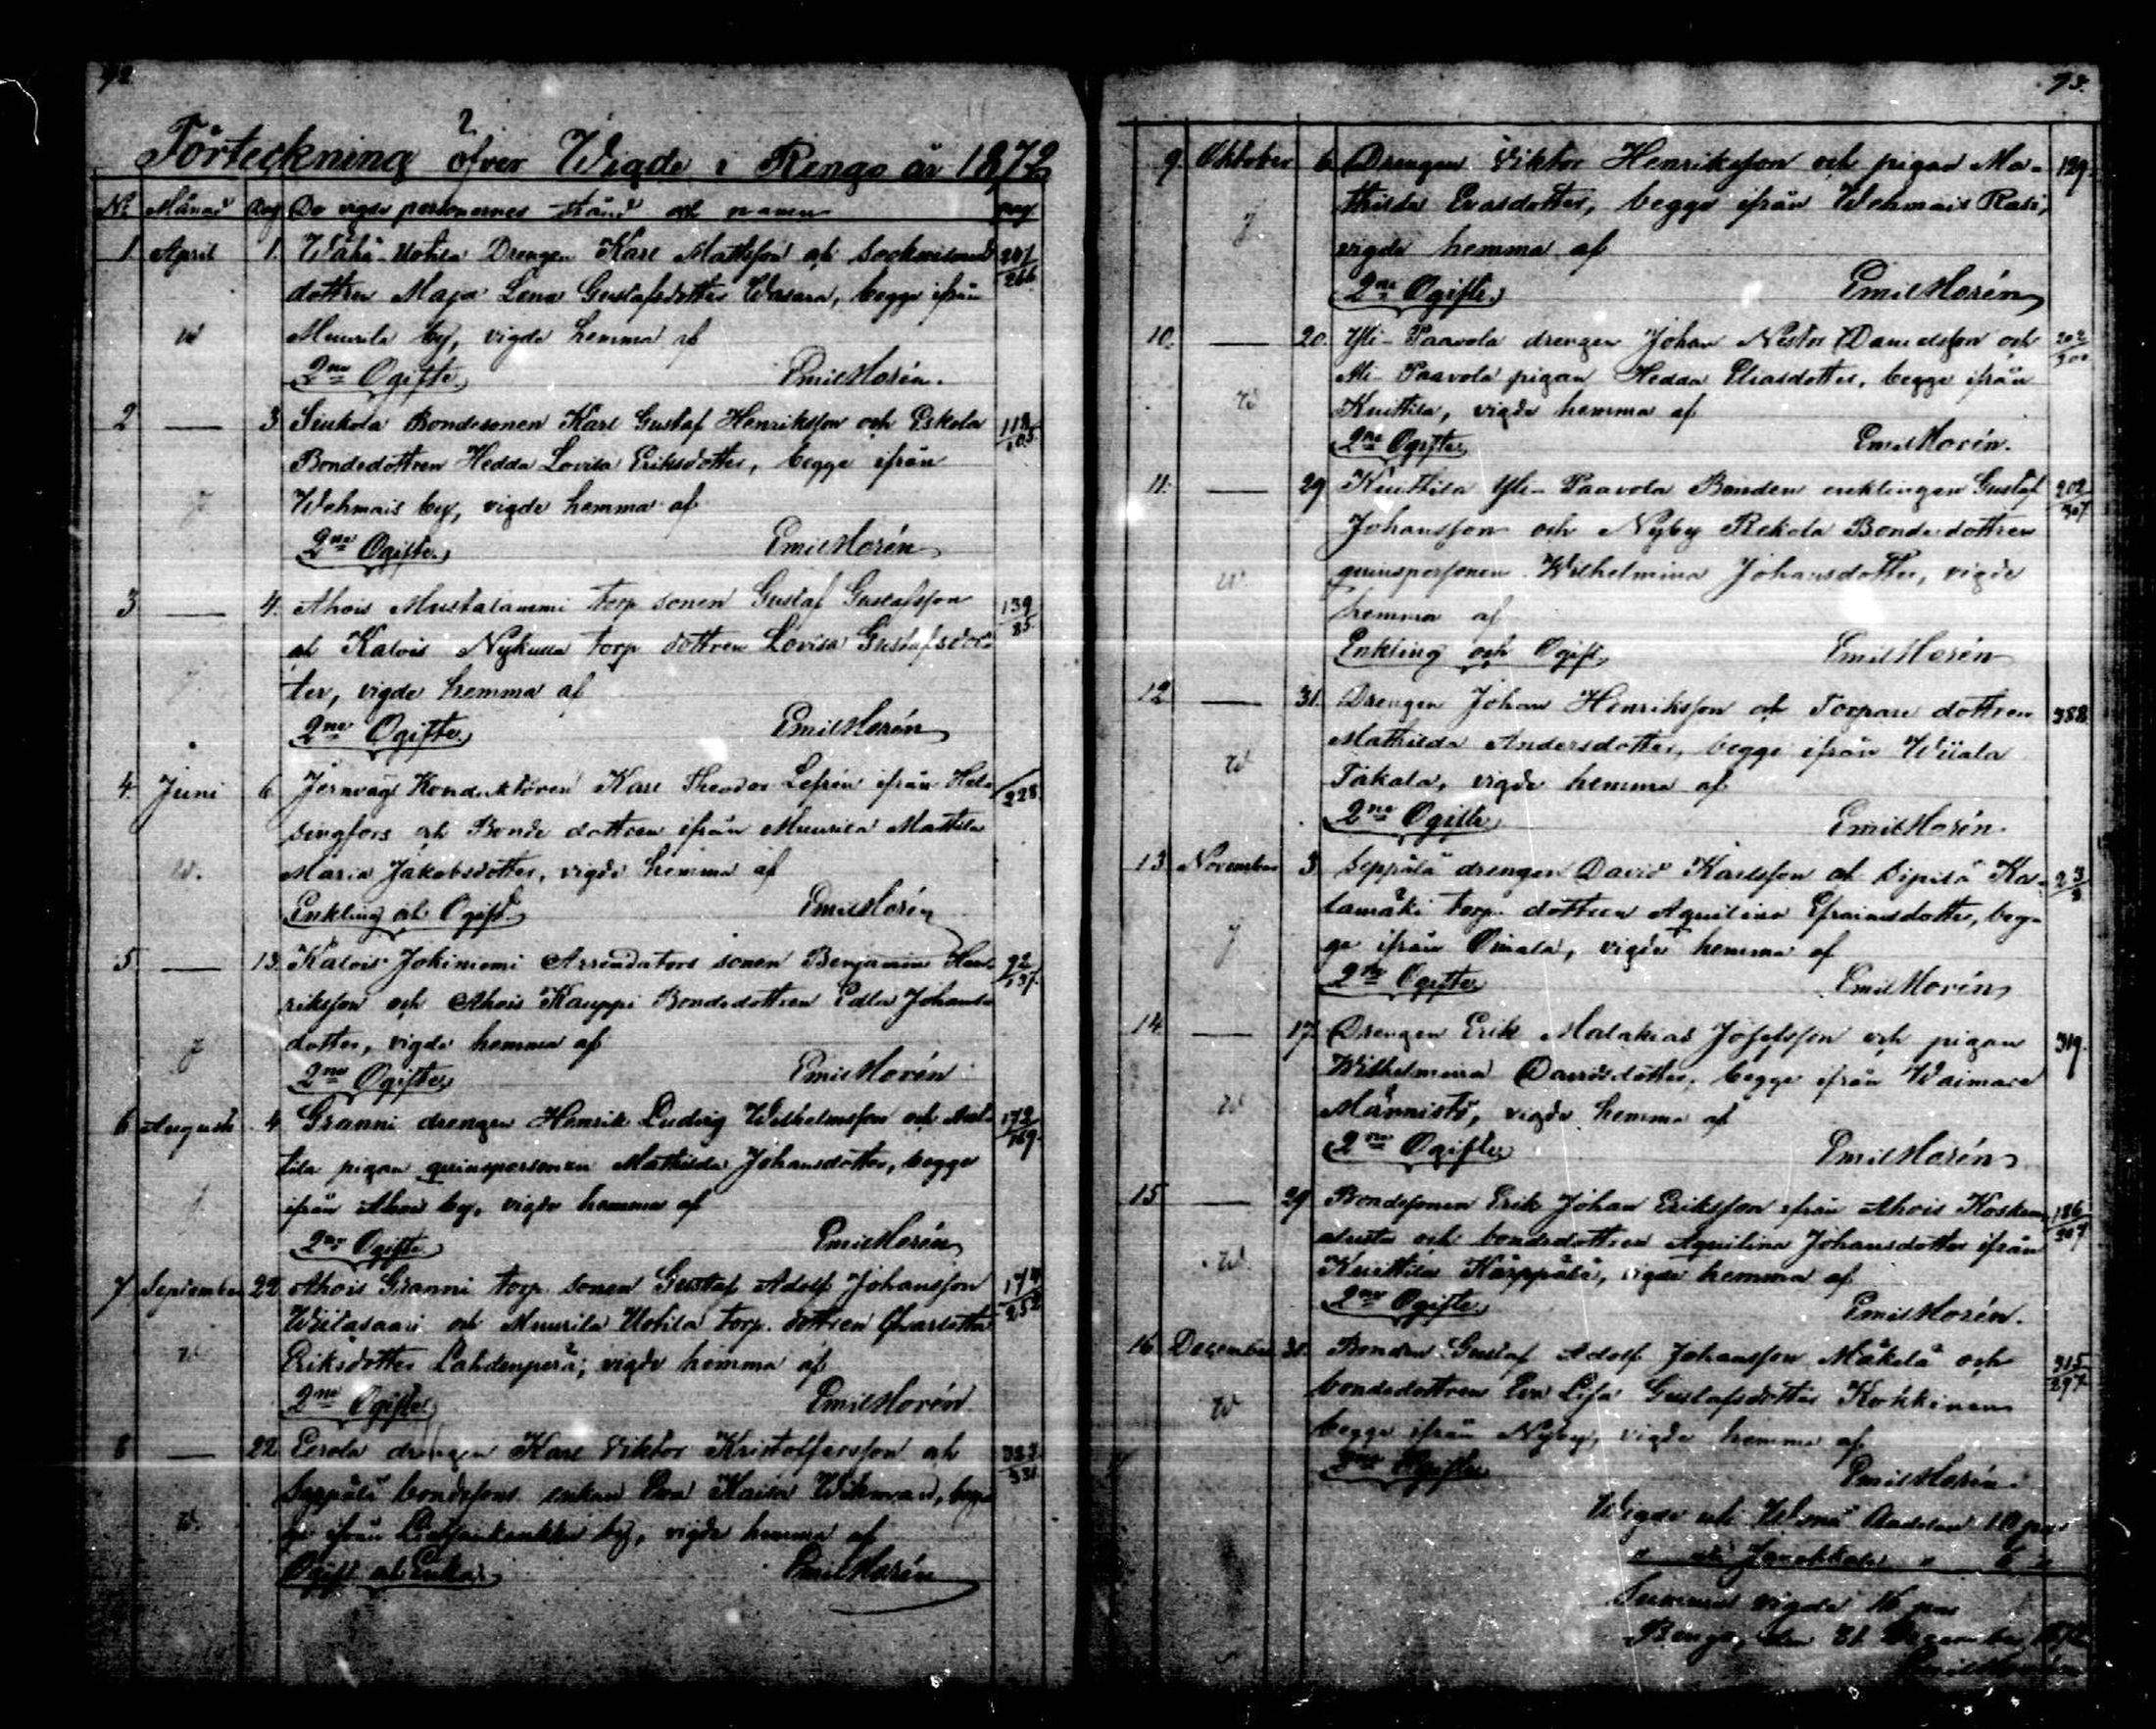 92.
Förteckning öfver Wigde i Rengo år 1872
No Månad Dag De vigde personernes stånd och namn pag
1. April 1. Wähä-Uotila Drengen Karl Mattsson och Sockne
dottren Maja Lena Gustafsdotter Wasara, begge ifrån 266
w Muurila by, vigde hemma af
2ne Ogifte. Emil Morén.
2 — 3. Siukola Bondesonen Karl Gustaf Henriksson och Eskola 118
Bondedottren Hedda Lovisa Eriksdotter, begge ifrån 105
j Wehmais by, vigde hemma af
2ne Ogifte. Emil Morén
3 — 4. Ahois Mustalammi torp sonen Gustaf Gustafsson 139
och Kalois Nykulla torp dottren Lovisa Gustafsdot- 85.
j. ter, vigde hemma af
2ne Ogifte. Emil Morén
4. Juni 6. Jernvägs Konduktören Karl Theodor Lefrén ifrån Hel- 228.
singfors och Bonde dottren ifrån Muurila Mattila
w. Maria Jakobsdotter, vigde hemma af
Enkling och Ogift. Emil Morén
5. — 13. Kalois Jokiniemi Arrendators sonen Benjamin Hen- 92
riksson och Ahois Kauppi Bondedottren Edla Johans- 137.
j dotter, vigde hemma af
2ne Ogifte. Emil Morén
6 Augusti 4. Granni drengen Henrik Ludvig Wilhelmsson och 172
tila pigan qvinspersonen Mathilda Johansdotter, begge 169.
j ifrån Ahois by, vigde hemma af
2ne Ogifte. Emil Morén
7. September 22. Ahois Granni torp. sonen Gustaf Adolf Johansson 174
Wiitasaari och Muurila Uotila torp. dottren Charlotta 252
w Eriksdotter Lahdenperä; vigde hemma af
2ne Ogifte. Emil Morén
8 — 22. Eerola drengen Karl Viktor Kristoffersson och
Seppälä bondesons enkan Eva Kaisa Wikman, beg- 331
w. ge ifrån by, vigde hemma af
Ogift och Enka. Emil Morén
93.
9. Oktober 6. Drengen Viktor Henriksson och pigan Ma- 129.
thilda Evasdotter, begge ifrån Wehmais Rasi,
j vigde hemma af
2ne Ogifte. Emil Morén
10. — 20. Yli-Paavola drengen Johan Nestor Danielsson och 202
Ali-Paavola pigan Hedda Eliasdotter, begge ifrån 200
w Kuittila, vigde hemma af
2ne Ogifte. Emil Morén.
11. — 29. Kuittila Yli-Paavola Bonden enklingen Gustaf 202
Johansson och Nyby Rekola Bondedottren 307
w. qvinspersonen Wilhelmina Johansdotter, vigde
hemma af
Enkling och Ogift. Emil Morén
12 — 31. Drengen Johan Henriksson och Torpare dottren 388
Mathilda Andersdotter, begge ifrån Wiiala
w Takala, vigde hemma af
2ne Ogifte. Emil Morén.
13. November 3. Seppälä drengen David Karlsson och Sipilä Ka- 23
lamäki torp. dottren Aquilina Efraimsdotter, beg- 8
j ge ifrån Oinala, vigde hemma af
2ne Ogifte. Emil Morén
14. — 17. Drengen Erik Malakias Josefsson och pigan 319.
Wilhelmina Davidsdotter, begge ifrån Waimare
w Männistö, vigde hemma af
2ne Ogifte. Emil Morén
15 — 29 Bondesonen Erik Johan Eriksson ifrån Ahois Kosken- 186
alusta och bondedottren Aquilina Johansdotter ifrån 207
w. Kuittila Kärppälä, vigde hemma af
2ne Ogifte. Emil Morén.
16. December 31. Bonden Gustaf Adolf Johansson Mäkelä och 315
bondedottren Eva Lisa Gustafsdotter Kokkinen 297
w begge ifrån Nyby, vigde hemma af
2ne Ogifte Emil Morén.
Wigde uti Wånå Andelen 10 par
" uti Janakkala " 6 "
Summa vigde 16 par
Rengo, den 31 December 1872
Emil Morén